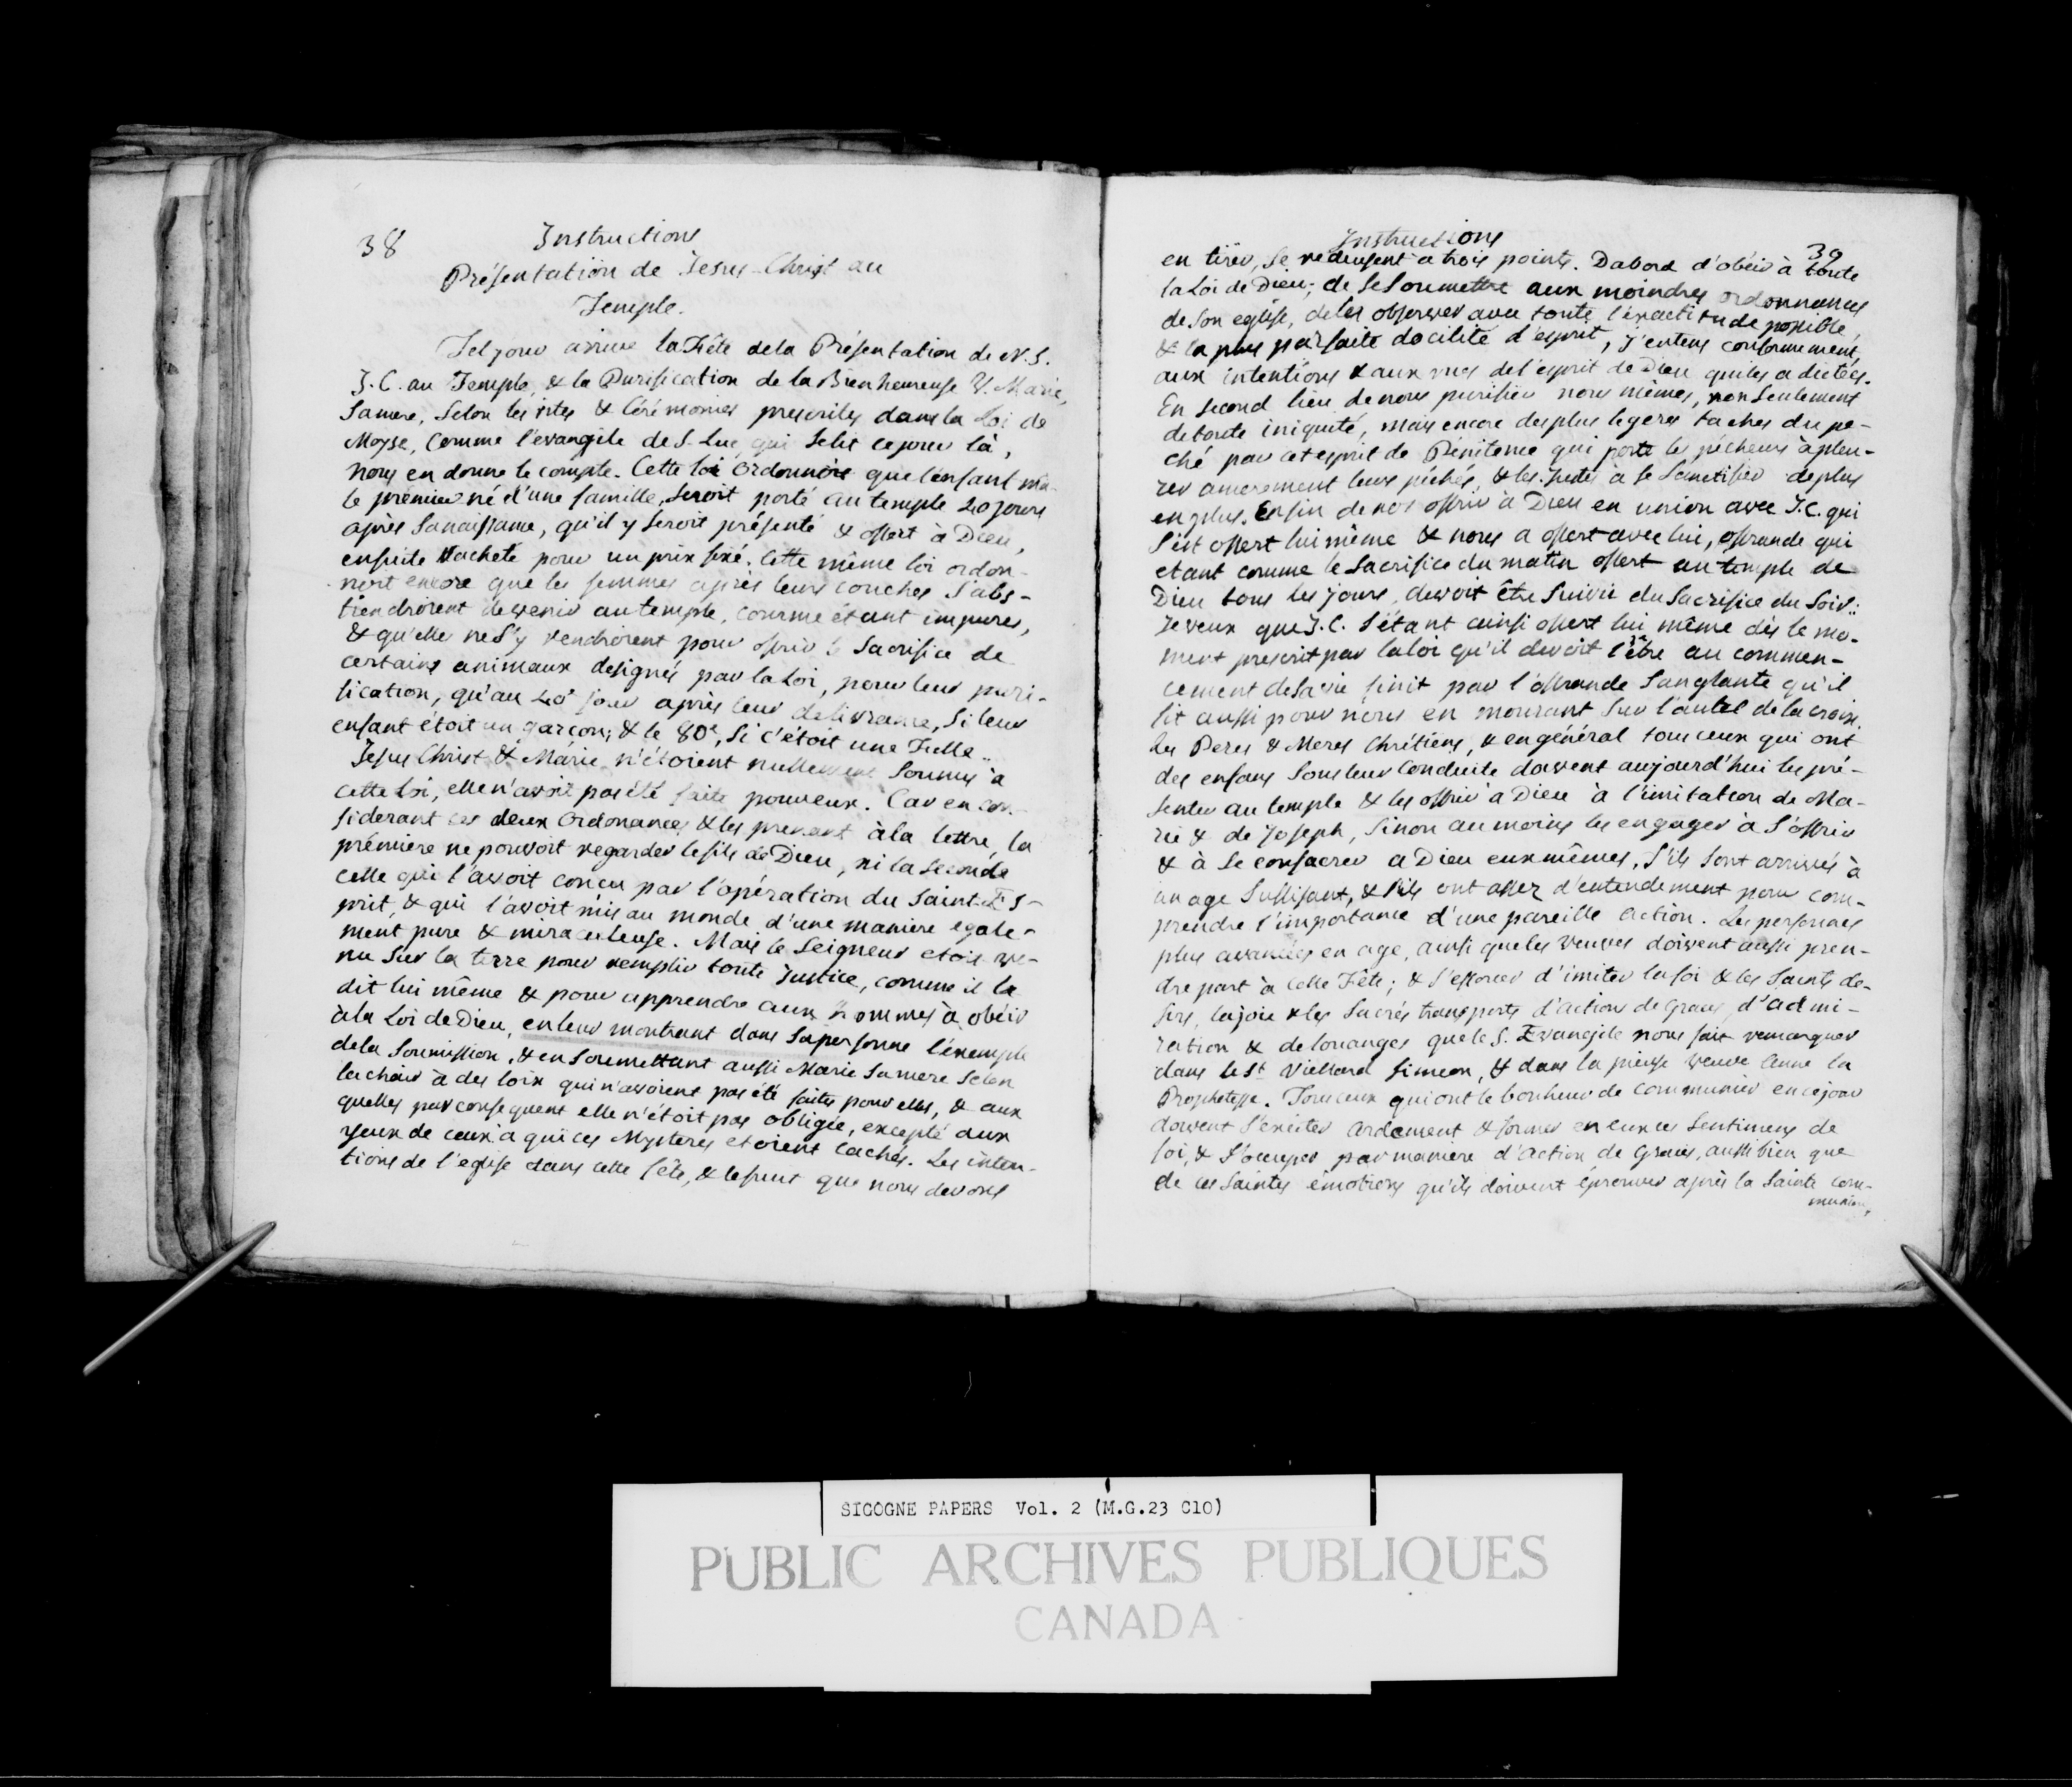 38
Instructions
Présentation de Jesus-Christ au
Temple.
Tel jour arrive la Fête de la Présentation de N. S.
J. C. au Temple, & la Purification de la Bienheureuse V. Marie,
Sa mere, Selon les rites & Cérémonies prescrites dans la Loi de
Moyse, Comme l'evangile de S. Luc, qui Se lit ce jour là,
nous en donne le compte. Cette loi Ordonnoit que l'enfant mâ-
le prémier né d'une famille, Seroit porté au temple 40 jours
après Sa naissance, qu'il y Seroit présenté & offert à Dieu,
ensuite Rachété pour un prix fixé. Cette même loi ordon-
noit encore que les femmes après leurs couches S'abs-
tiendroient de venir au temple, comme étant impures,
& qu'elle ne S'y rendroient pour offrir le Sacrifice de
certains animaux designés par la Loi, pour leur puri-
fication, qu'au 40e jour après leur delivrance, Si leur
enfant étoit un garçon; & le 80e, Si c'étoit une Fille..
Jesus Christ & Marie n'étoient nullement Soumis à
cette Loi, elle n'avoit pas été faite pour eux. Car en con-
siderant ces deux Ordonances & les prenant à la lettre, la
prémiere ne pouvoit regarder le fils de Dieu, ni la Seconde
celle qui l'avoit conçu par l'opération du Saint-Es-
prit, & qui l'avoit mis au monde d'une maniere egale-
ment pure & miraculeuse. Mais le Seigneur etoit ve-
nu Sur la terre pour remplir toute Justice, comme il le
dit lui même & pour apprendre aux hommes à obéir
à la Loi de Dieu, en leur montrant dans Sa personne l'exemple
de la Soumission, & en Soumettant aussi Marie Sa mere Selon
la chair à des loix qui n'avoient pas été faites pour elles, & aux
quelles par consequent elle n'étoit pas obligée, excepté aux
yeux de ceux à qui ces Mysteres etoient cachés. Les inten-
tions de l'eglise dans cette fête, & le fruit que nous devons
Instructions
39
en tirer, Se reduisent a trois points. Dabord d'obéir à toute
la Loi de Dieu; de Se Soumettre aux moindres ordonnances
de Son eglise, de les observer avec toute l'exactitude possible,
& la plus parfaite docilité d'esprit, j'entens conformement,
aux intentions & aux vues de l'esprit de Dieu qui les a dictées.
En Second lieu de nous purifier nous mêmes, non Seulement
de toute iniquité, mais encore des plus legeres taches du pe-
ché par cet esprit de Pénitence qui porte les pécheurs à pleu-
rer amerement leurs péchés, & les Justes à Se Sanctifier de plus
en plus. Enfin de nous offrir à Dieu en union avec J. C. qui
S'est offert lui même & nous a offert avec lui, offrande qui
etant comme le Sacrifice du matin offert au temple de
Dieu tous les jours, devoit être Suivie du Sacrifice du Soir..
Je veux que J. C. S'étant ainsi offert lui même dès le mo-
ment prescrit par la loi qu'il devoit l'être au commen-
cement de Sa vie finit par l'offrande Sanglante qu'il
fit aussi pour nous en mourant Sur l'autel de la croix.
Les Peres & Meres Chrétiens, & en général tous ceux qui ont
des enfans Sous leur Conduite doivent aujourd'hui les pré-
Senter au temple & les offrir à Dieu à l'imitation de Ma-
rie & de Joseph, Sinon au moins les engager à S'offrir
& à Se consacrer a Dieu eux mêmes, S'ils Sont arrivés à
un age Suffisant, & S'ils ont assez d'entendement pour com-
prendre l'importance d'une pareille action. Les personnes
plus avancées en age, ainsi que les Veuves doivent aussi pren-
dre part à cette Fête; & S'efforcer d'imiter la foi & les Saints de-
sirs, la joie & les Sacrés transports d'action de Graces, d'admi-
ration & de louanges que le S. Evangile nous fait remarquer
dans le St Viellard Simeon, & dans la pieuse veuve Anne la
Prophetesse. Tous ceux qui ont le bonheur de communier en ce jour
doivent S'exciter Ardement & former en eux ces Sentimens de
foi, & S'occuper par maniere d'Action de Graces, aussi bien que
de ces Saintes émotions qu'ils doivent éprouver après la Sainte com-
munion,
SICOGNE PAPERS Vol. 2 (M.G.23 C10)
PUBLIC ARCHIVES PUBLIQUES
CANADA